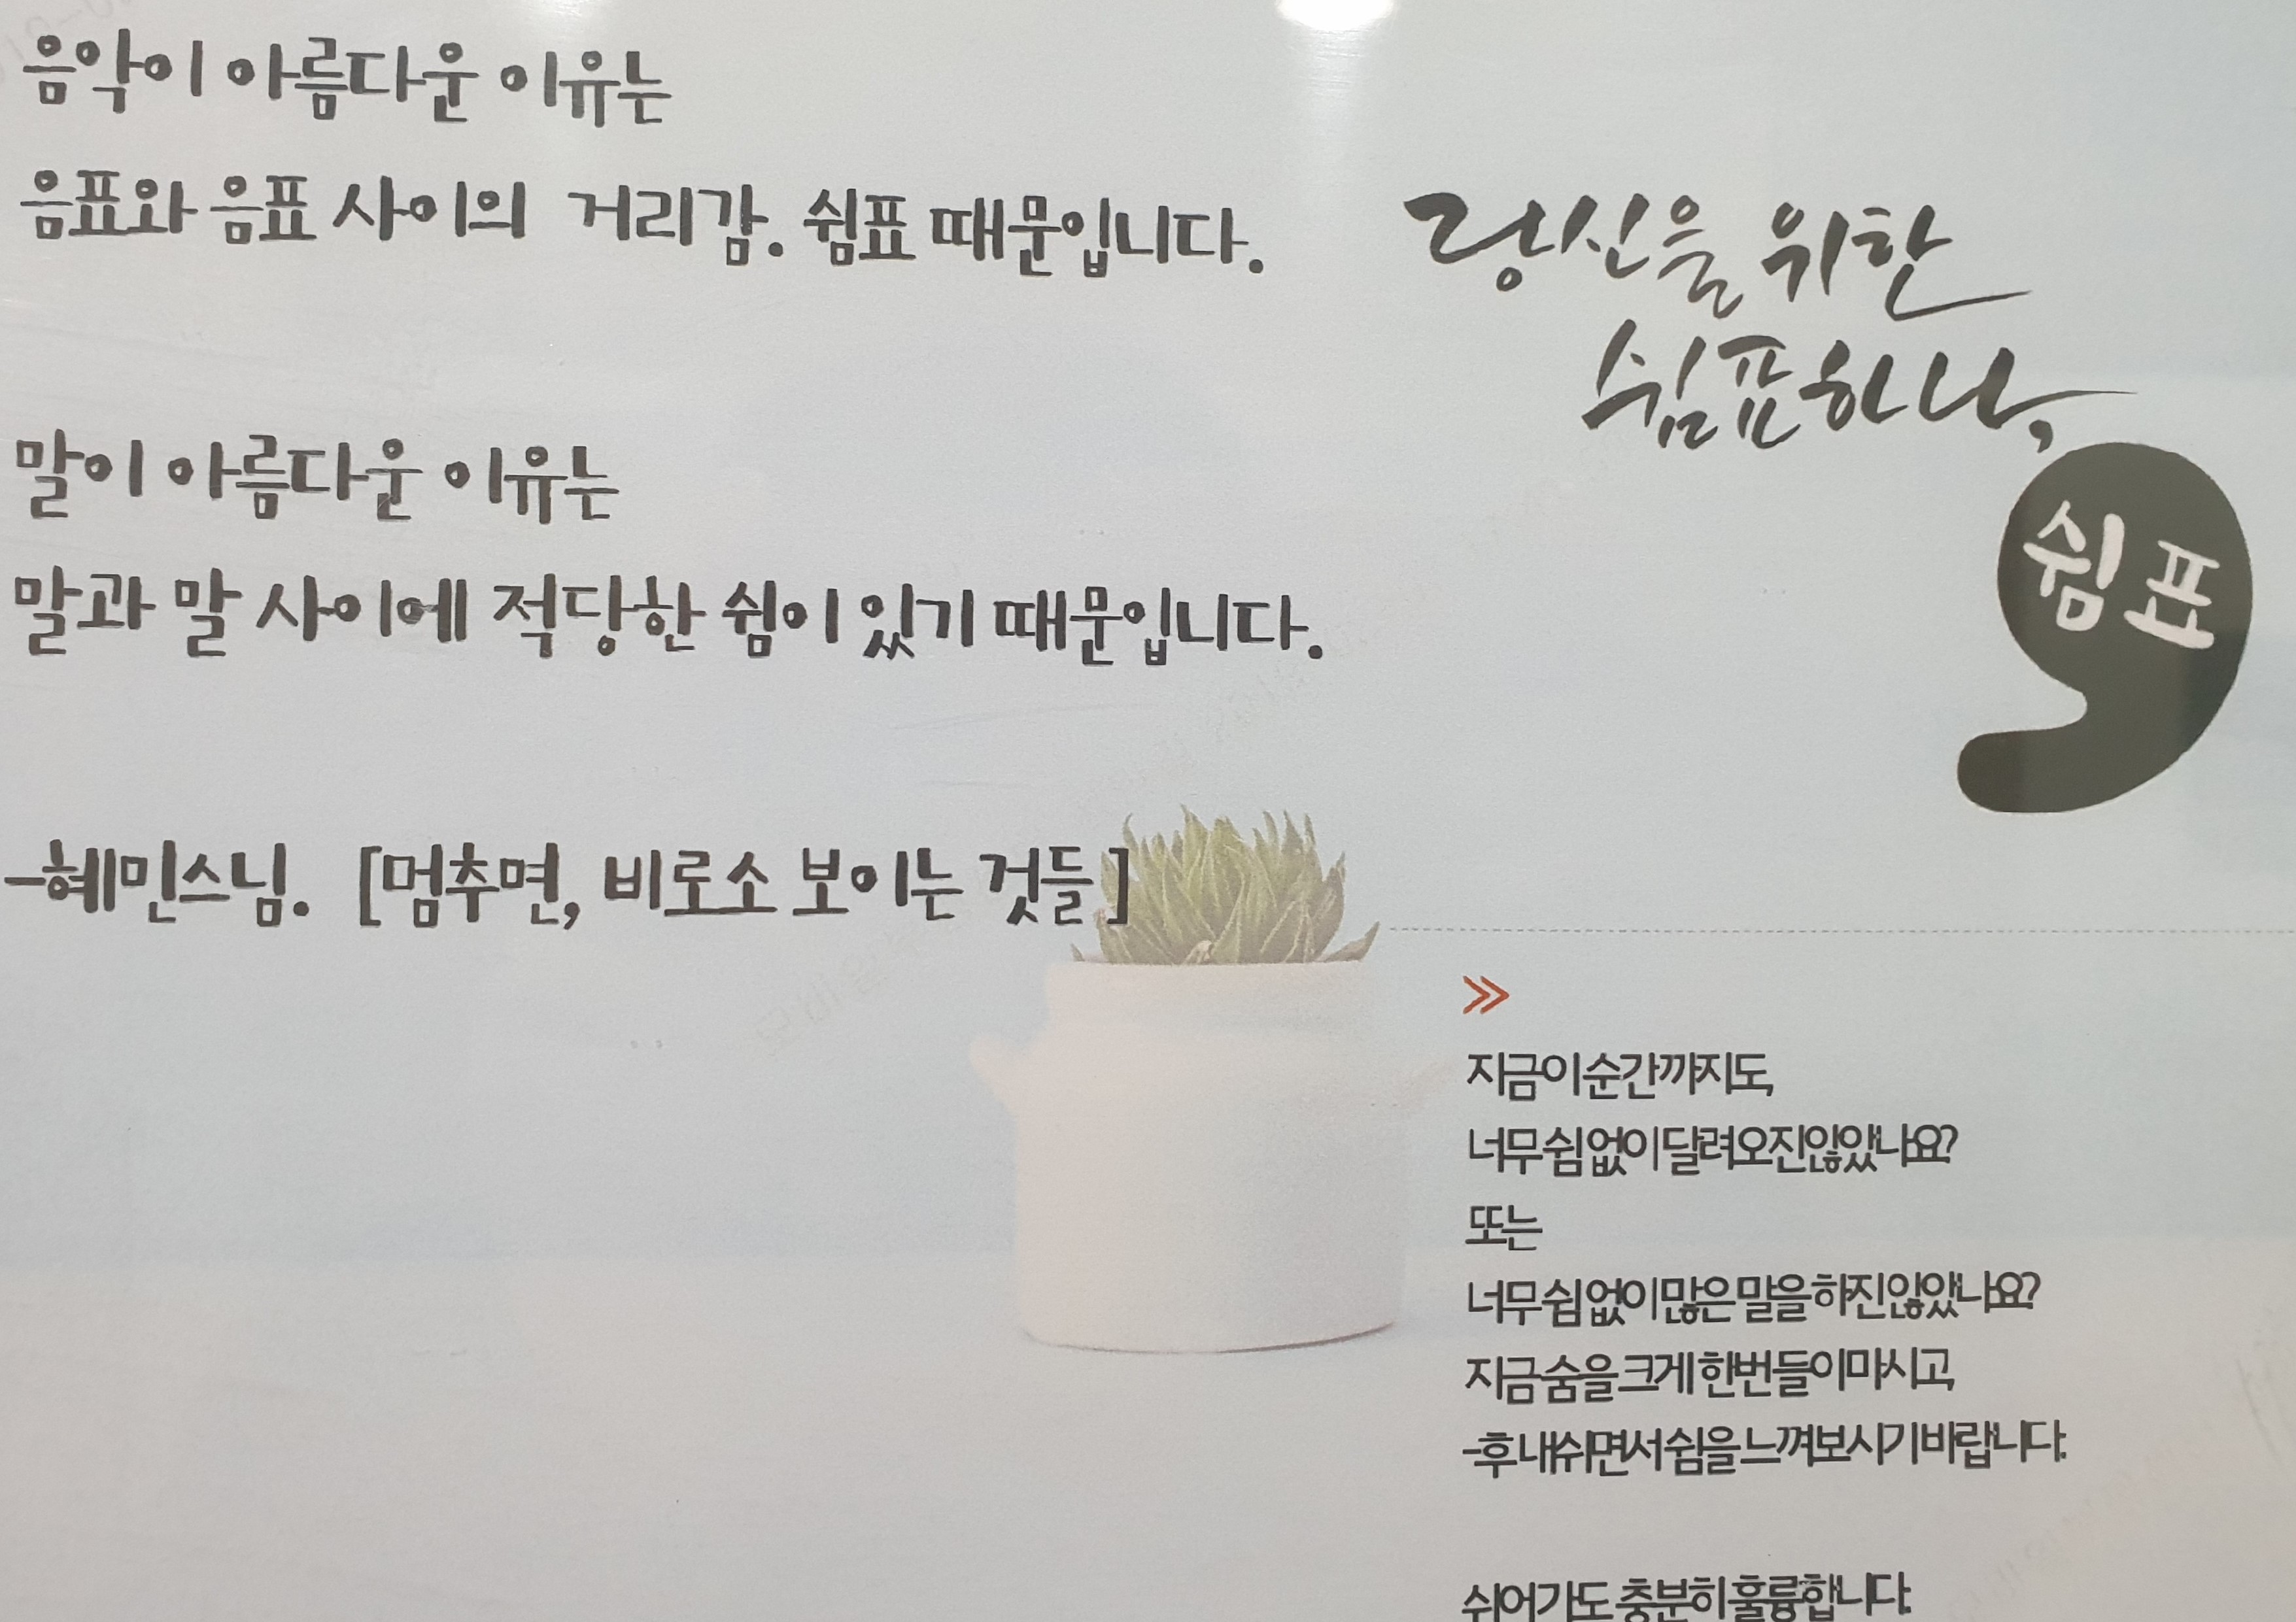 음악이 아름다운 이유는
음표와 음표 사이의 거리감. 쉼표 때문입니다.
말이 아름다운 이유는
말과 말 사이에 적당한 쉼이 있기 때문입니다.
-혜민스님. [멈추면, 비로소 보이는 것들]
당신을 위한
쉼표하나,
쉼표
지금 이 순간까지도,
너무 쉼 없이 달려오진 않았나요?
또는
너무 쉼 없이 많은 말을 하진 않았나요?
지금 숨을 크게 한번 들이마시고,
-후 내쉬면서 쉼을 느껴보시기 바랍니다.
쉬어가도 충분히 훌륭합니다.